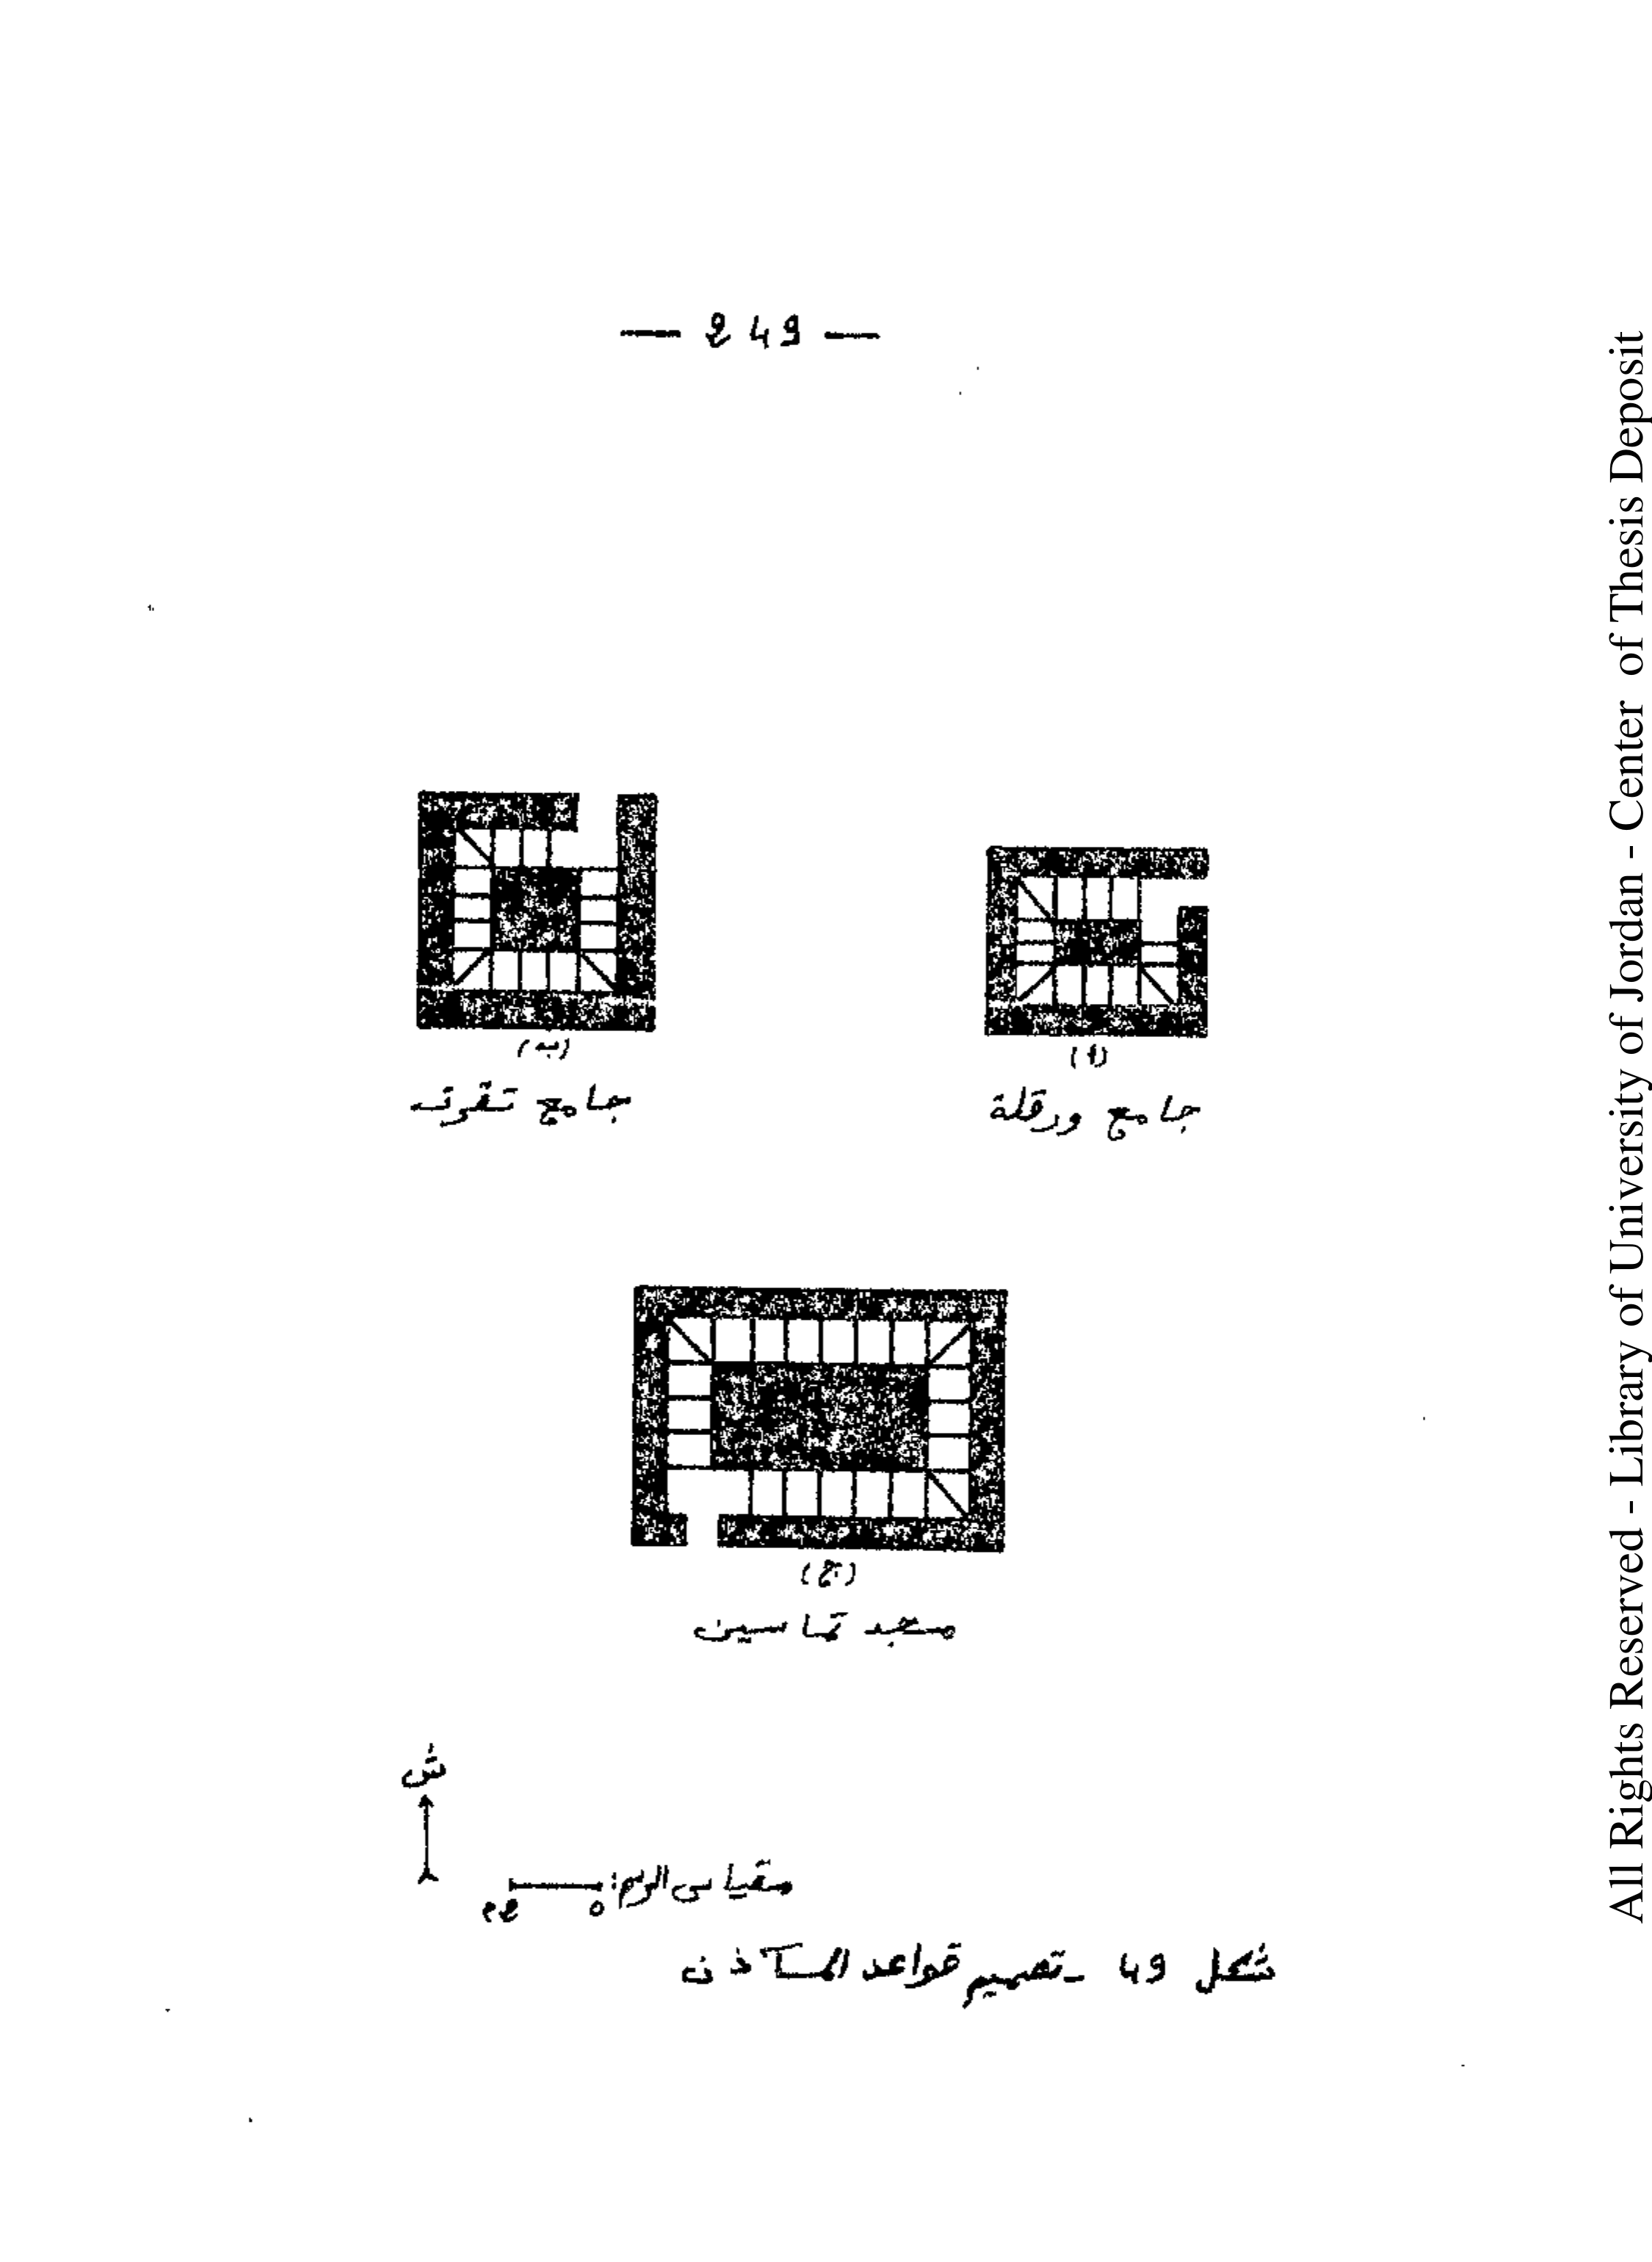 — 249 —
(أ)
جامع ورقلة
(ب)
جامع تقرت
(ج)
مسجد تماسين
ش
مقياس الرسم: 0 2م
شكل 49 - تصميم قواعد المآذن
All Rights Reserved - Library of University of Jordan - Center of Thesis Deposit